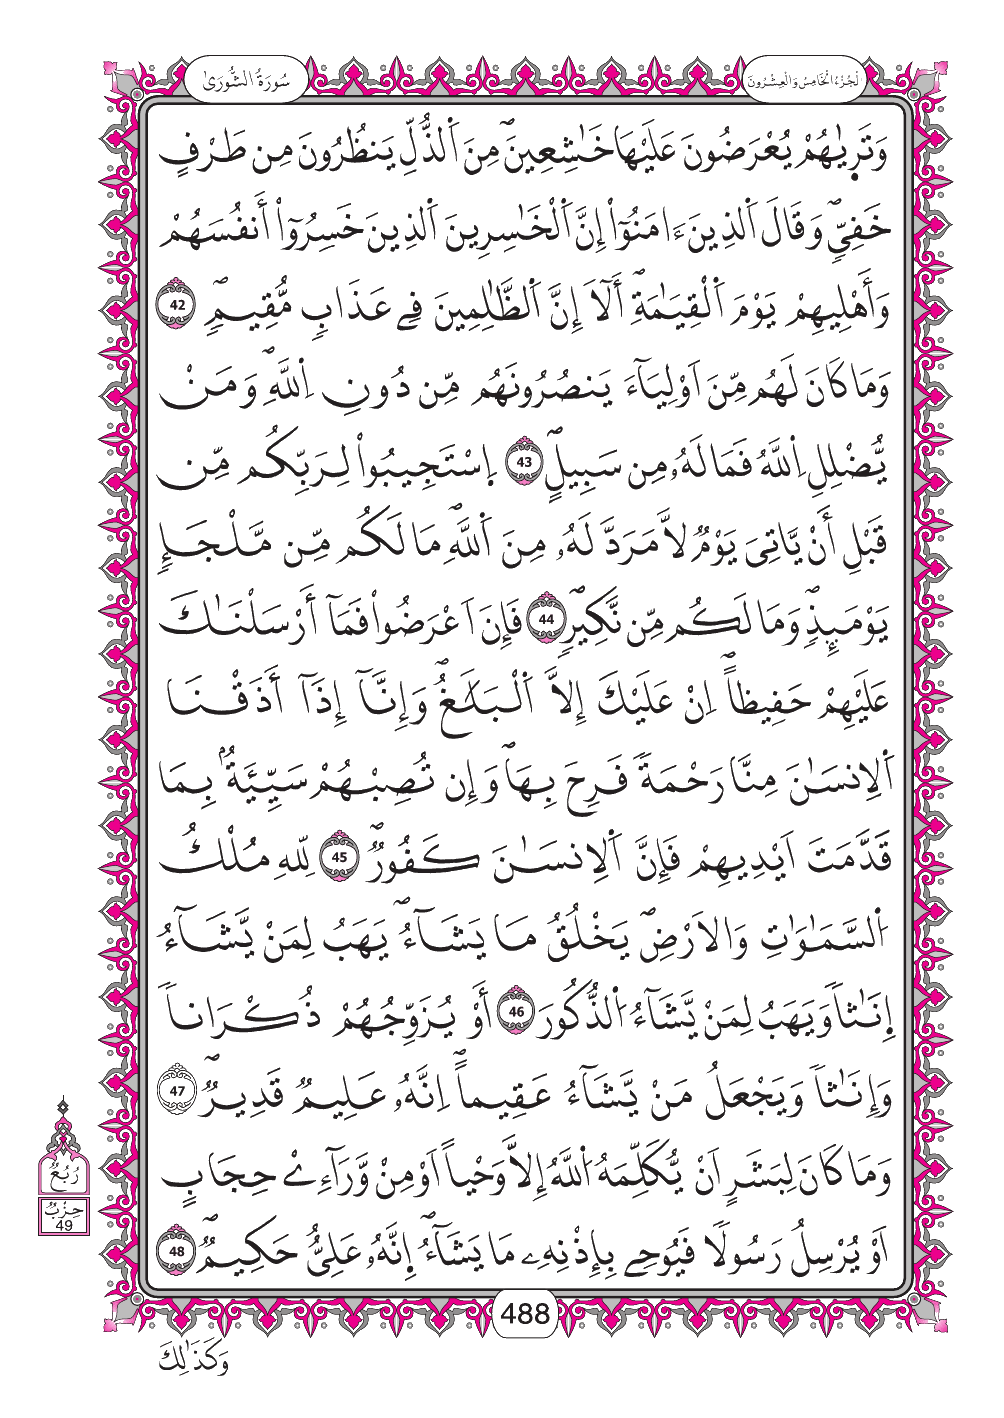 سُورَةُ الشُّورَىٰ
اَلْجُزْءُ الْخَامِسُ وَالْعِشْرُونَ
وَتَر۪يٰهُمْ يُعْرَضُونَ عَلَيْهَا خَٰشِعِينَۖ مِنَ اَ۬لذُّلِّ يَنظُرُونَ مِن طَرْفٍ
خَفِيّٖۖ وَقَالَ اَ۬لذِينَ ءَامَنُوٓاْ إِنَّ اَ۬لْخَٰسِرِينَ اَ۬لذِينَ خَسِرُوٓاْ أَنفُسَهُمْ
وَأَهْلِيهِمْ يَوْمَ اَ۬لْقِيَٰمَةِۖ أَلَآ إِنَّ اَ۬لظَّٰلِمِينَ فِے عَذَابٖ مُّقِيمٖۖ 42
وَمَا كَانَ لَهُم مِّنَ اَوْلِيَآءَ يَنصُرُونَهُم مِّن دُونِ اِ۬للَّهِۖ وَمَنْ
يُّضْلِلِ اِ۬للَّهُ فَمَا لَهُۥ مِن سَبِيلٍۖ 43 اِ۪سْتَجِيبُواْ لِرَبِّكُم مِّن
قَبْلِ أَنْ يَّاتِيَ يَوْمٞ لَّا مَرَدَّ لَهُۥ مِنَ اَ۬للَّهِۖ مَا لَكُم مِّن مَّلْجَإٖ
يَوْمَئِذٖۖ وَمَا لَكُم مِّن نَّكِيرٖۖ 44 فَإِنَ اَعْرَضُواْ فَمَآ أَرْسَلْنَٰكَ
عَلَيْهِمْ حَفِيظاًۖ اِنْ عَلَيْكَ إِلَّا اَ۬لْبَلَٰغُۖ وَإِنَّآ إِذَآ أَذَقْنَا
اَ۬لِانسَٰنَ مِنَّا رَحْمَةٗ فَرِحَ بِهَاۖ وَإِن تُصِبْهُمْ سَيِّئَةُۢ بِمَا
قَدَّمَتَ اَيْدِيهِمْ فَإِنَّ اَ۬لِانسَٰنَ كَفُورٞۖ 45 لِّلهِ مُلْكُ
اُ۬لسَّمَٰوَٰتِ وَالَارْضِۖ يَخْلُقُ مَا يَشَآءُۖ يَهَبُ لِمَنْ يَّشَآءُ
إِنَٰثاٗ وَيَهَبُ لِمَنْ يَّشَآءُ اُ۬لذُّكُورَ 46 أَوْ يُزَوِّجُهُمْ ذُكْرَاناٗ
وَإِنَٰثاٗ وَيَجْعَلُ مَنْ يَّشَآءُ عَقِيماًۖ اِنَّهُۥ عَلِيمٞ قَدِيرٞۖ 47
وَمَا كَانَ لِبَشَرٍ اَنْ يُّكَلِّمَهُ اُ۬للَّهُ إِلَّا وَحْياً اَوْ مِنْ وَّرَآءِےْ حِجَابٍ
اَوْ يُرْسِلُ رَسُولاٗ فَيُوحِے بِإِذْنِهِۦ مَا يَشَآءُۖ إِنَّهُۥ عَلِيٌّ حَكِيمٞۖ 48
رُبُعٌ
حِزْبٌ
49
488
وَكَذَٰلِكَ